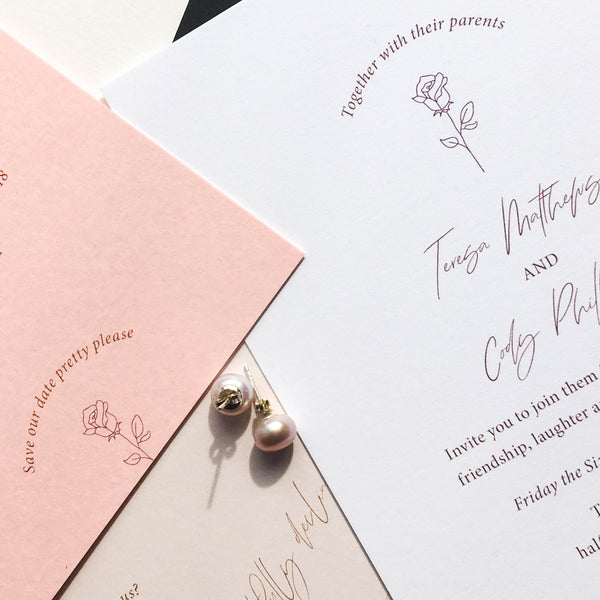 Together with their parents
Teresa Matthews
AND
Cody
Invite you to join them
friendship, laughter
Friday the
18
Save our date pretty please